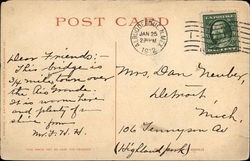 POST CARD
ALBUQUERQUE, N.MEX.
JAN 25
1912
Dear Friends:-
This bridge is
3/4 miles long over
the Rio Grande.
It is warm here
and plenty of
shine from
Mr. F. H. H.
Mrs. Dan Neuber,
Detroit,
Mich.
106 Tennyson Av
(Highland park)